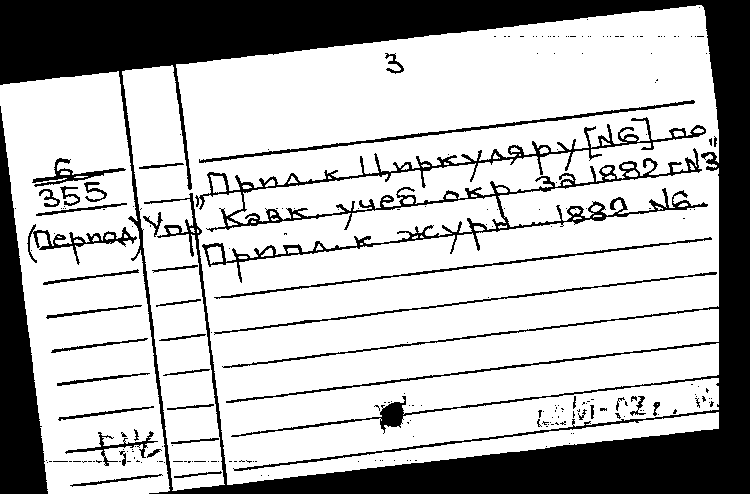 3
Б
355
(Период)
„Прил. к Циркуляру [№6] по
Упр. Кавк. учеб. окр. за 1882 г. №3"
Прил. к журн. 1882 №6.